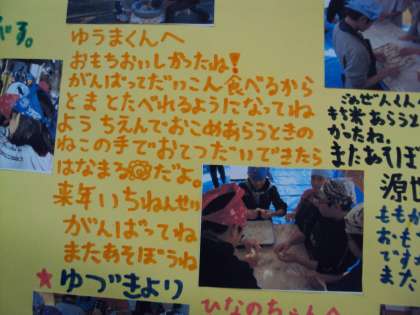 です。
ゆうまくんへ
おもちおいしかったね!
がんばってだいこん食べるから
とまとたべれるようになってね
ようちえんでおこめあらうときの
ねこの手でおてつだいできたら
はなまるだよ。
来年いちねんせい
がんばってね
またあそぼうね
★ゆづきより
もち米あらうと
かったね。
またあそぼ
源世
ももが
ですか
また
ひなのちゃんへ